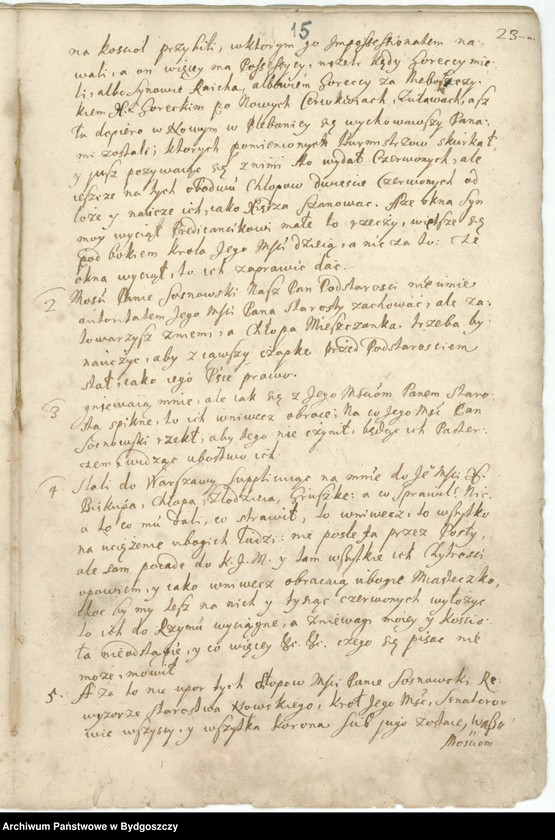 15
23
na kościoł przybili, w ktorym go Impossessionatem na-
wali, a on więcey ma Possessyey, niżeli kiedy Goreccy mie-
li, albo Synowie Raicha, albowiem Goreccy za Nieboszczy-
kiem X. Goreckim po Nowych Cerkwiach, Żuławach, asz
tu dopiero w Nowym w Plebaniey się wychowawszy Pana-
mi zostali; ktorych pomienionych Burmistrzow skurkąt,
y jusz pozywaiąc się z nimi sto wydał Czerwonych, ale
ieszcze na tych obudwu Chłopow dwieście Czerwonych od
łoże y naucze ich, iako Xiędza szanować. Aże okna syn
moy wyciął Predicantkowi małe to rzeczy, większe się
pod bokiem krola Jego Mści dzieią, a nic za to: Że
okna wyciął, to ich zaprawić dać.
2 Mości Panie Sosnowski Nasz Pan Podstarości nie umie
autoritatem Jego Mści Pana Starosty zachować, ale za-
towarzysz z niemi, a Chłopa Mieszczanka trzeba by
nauczyc, aby zdiąwszy czapke przed Podstarosciem
stał, iako iego Psie prawo.
3 gniewaią mnie, ale iak się z Jego Mściom Panem Staro-
stą spikne, to ich wniwecz obroce; Na co Jego Mść Pan
Sosnowski rzekł, aby tego nie czynił, będąc ich Paster-
zem, widząc ubostwo ich.
4 Słali do Warszawy supplikuiąc na mnie do Je Mści X.
Biskupa, Chłopa, Złodzieia, Gruszkę: a co sprawił? Nic.
a to co mu dali, co strawił, to wniwecz, to wszystko
na uciążenie ubogich ludzi: nie posle ia przez Posły,
ale sam poiade do K. J. M. y tam wszytkie ich Chytrości
opowiem, y iako wniwecz obracaią ubogie Miasteczko,
choc by my tesz na nich y tysiąc czerwonych wyłożyc
to ich do Rzymu wyciągne, a zniewagi moiey y kościo-
ła nieodstąpie, y co więcey &c. &c. czego się pisac nie
może, mowił
5. A za to nie upor tych chłopow Mści Panie Sosnowski Re-
wyzorze Starostwa Nowskiego, krol Jego Mść, Senatoro-
wie wszyscy, y wszytka korona sub jugo zostaie, Waszo
Mościom
Archiwum Państwowe w Bydgoszczy